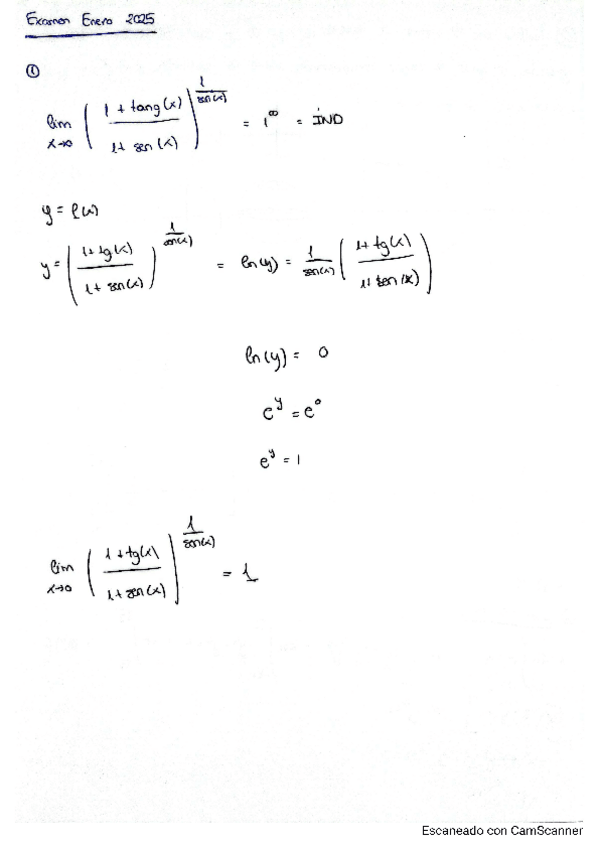 Examen Enero 2025
①
lim x→0 ( (1 + tang(x)) / (1 + sen(x)) )^(1/sen(x)) = 1^∞ = IND
y = f(x)
y = ( (1+tg(x)) / (1 + sen(x)) )^(1/sen(x)) = ln(y) = 1/sen(x) ( (1+tg(x)) / (1+sen(x)) )
ln(y) = 0
e^y = e^0
e^y = 1
lim x→0 ( (1+tg(x)) / (1+sen(x)) )^(1/sen(x)) = 1
Escaneado con CamScanner